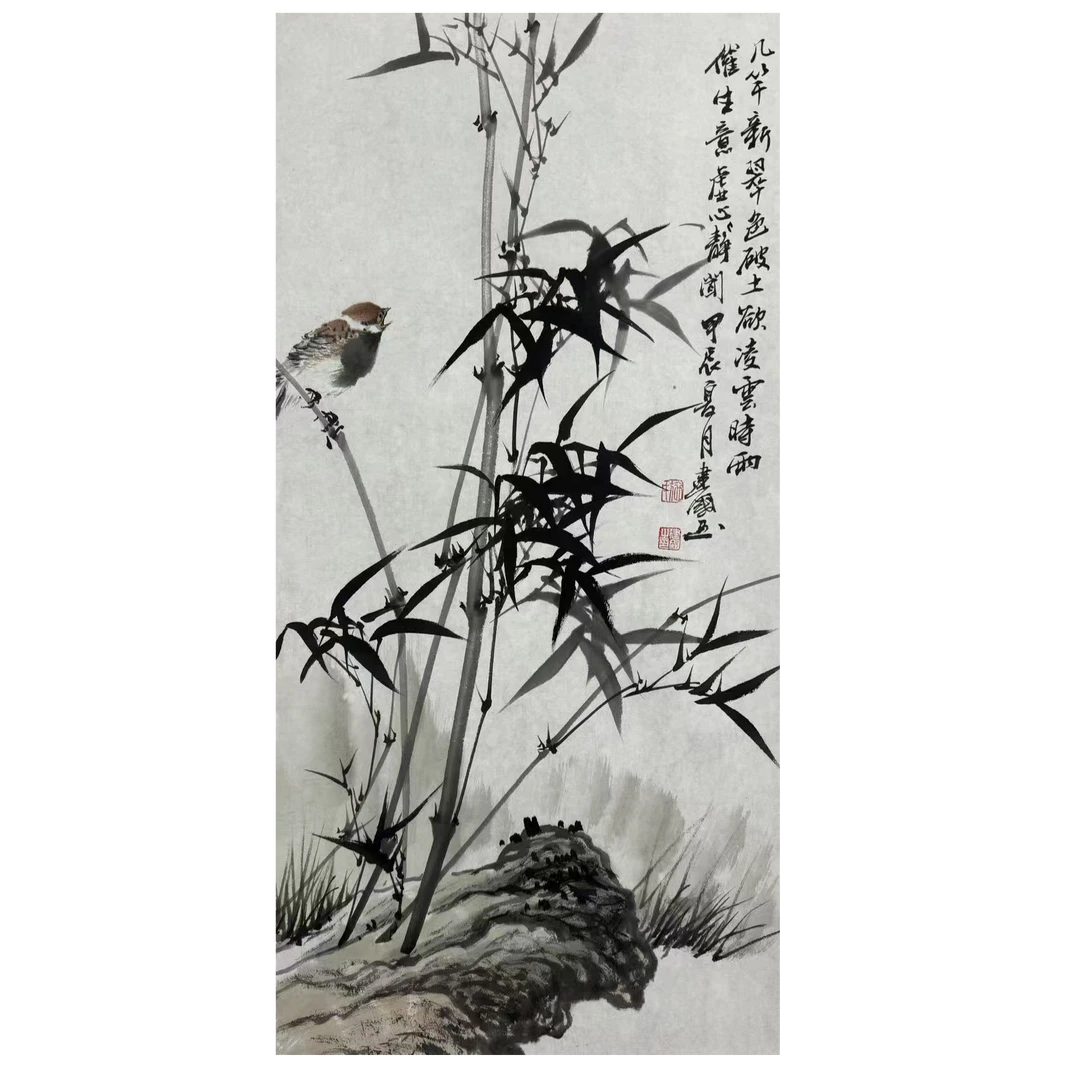 几竿新翠色破土欲凌雲時雨
催生意虚心靜聞甲辰夏月建國